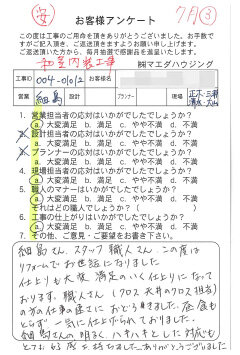 安 お客様アンケート 7月③
この度は工事のご用命を頂きありがとうございました。お手数で
すがご記入頂き、ご返送頂きますようお願い申し上げます。
ご返送頂いた方から、毎月抽選で感謝品を進呈いたします。
和室内装工事 ㈱マエダハウジング
工事ID 004- お客様名
営業 細島 設計 プランナー 現場
1. 営業担当者の応対はいかがでしたでしょうか?
a. 大変満足 b. 満足 c. やや不満 d. 不満
2. 設計担当者の応対はいかがでしたでしょうか?
a. 大変満足 b. 満足 c. やや不満 d. 不満
3. プランナーの応対はいかがでしたでしょうか?
a. 大変満足 b. 満足 c. やや不満 d. 不満
4. 現場担当者の応対はいかがでしたでしょうか?
a. 大変満足 b. 満足 c. やや不満 d. 不満
5. 職人のマナーはいかがでしたでしょうか?
a. 大変満足 b. 満足 c. やや不満 d. 不満
それはどの職人でしょうか?( )
6. 工事の仕上がりはいかがでしたでしょうか?
a. 大変満足 b. 満足 c. やや不満 d. 不満
7. その他、ご意見・ご要望をお書き下さい。
細島さん、スタッフ 職人さん、この度は
リフォームでお世話になりました
仕上りも大変満足のいく仕上りになって
おります。職人さん(クロス 天井のクロス担当)
の方の仕事の速さに おどろきました。昼食も
とらず 一気に仕上げられておりました。
細島さんの明るく ハキハキとした対応も
とても好感を持てました。ありがとうございました